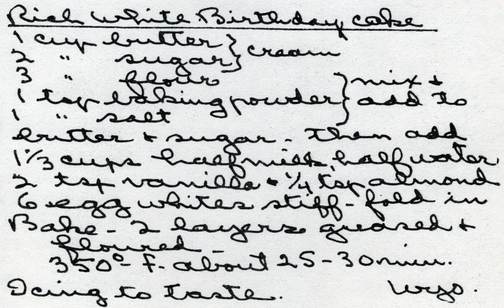 Rich White Birthday cake
1 cup butter } cream
2 " sugar
3 " flour } mix &
1 tsp baking powder add to
1 " salt
butter & sugar - then add
1 1/3 cups half milk, half water
2 tsp vanilla & 1/4 tsp almond
6 egg whites stiff - fold in
Bake - 2 layers greased &
floured -
350° - F. about 25 - 30 min.
Icing to taste.